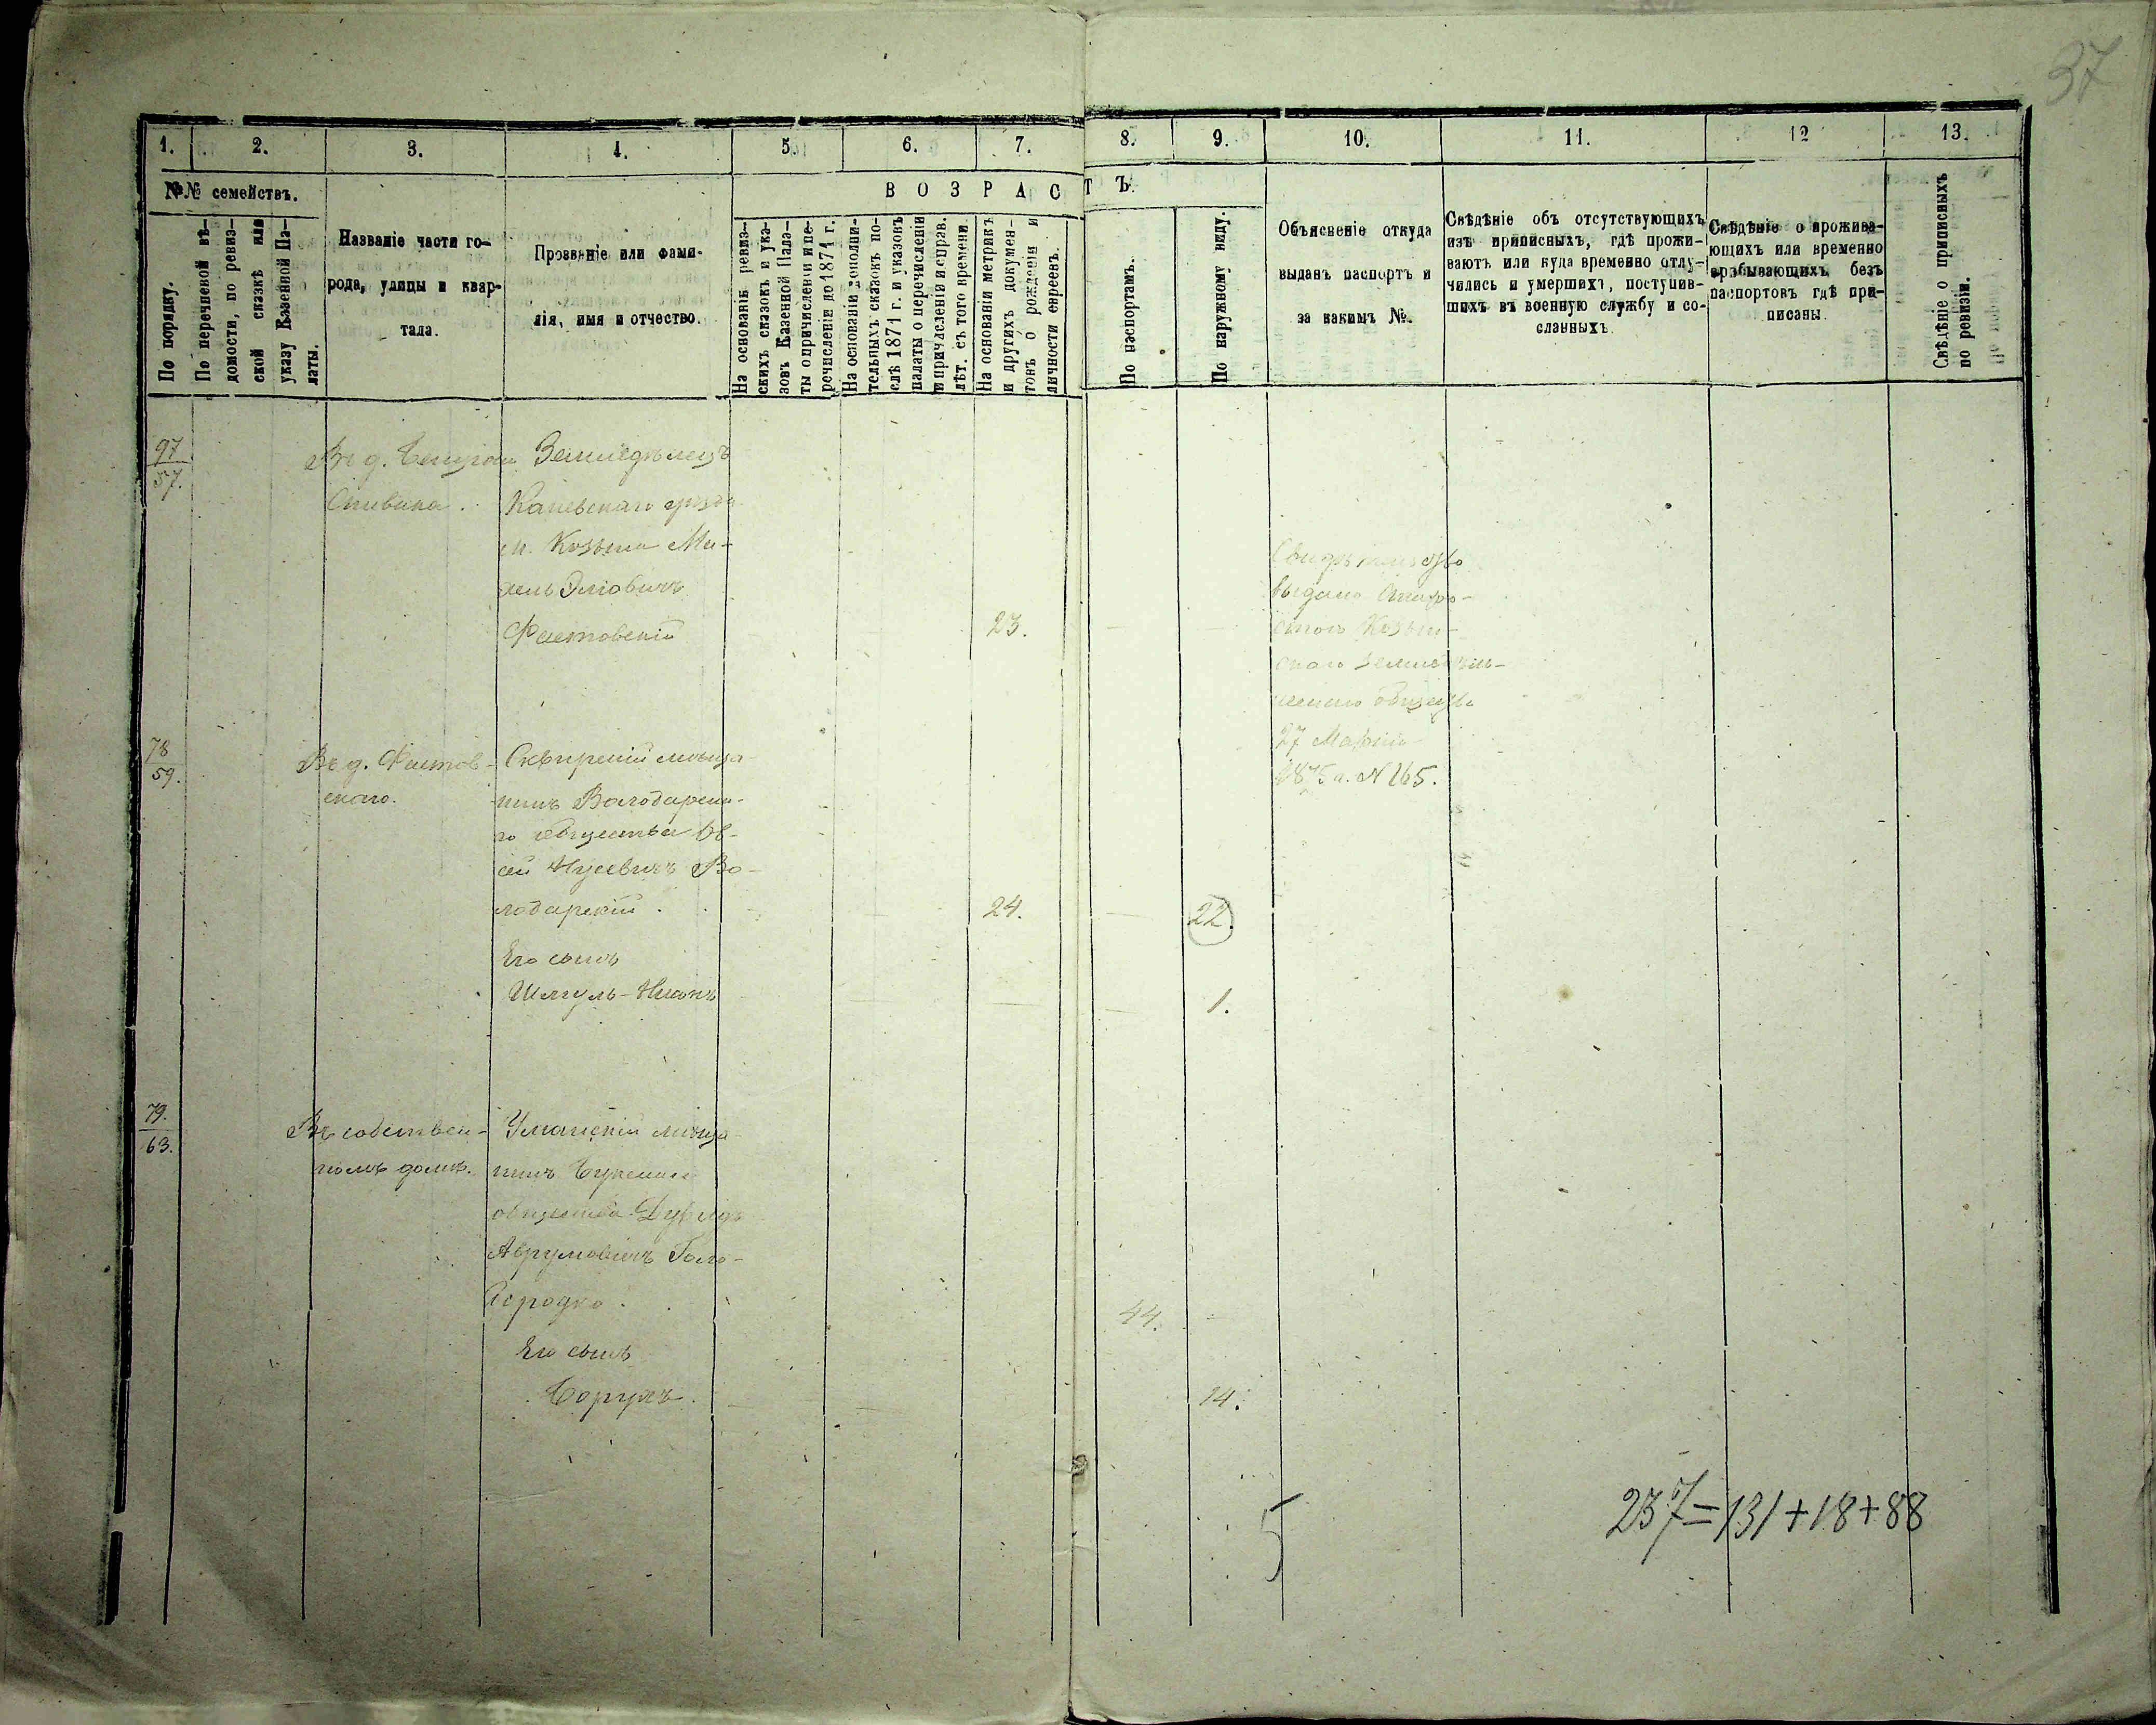 37
1. 2. 3. 4. 5. 6. 7. 8. 9. 10. 11. 12 13.
№№ семействъ.
ВОЗРАСТЪ.
По порядку.
По перечневой вѣ-
домости, по ревиз-
ской сказкѣ или
указу Казенной Па-
латы.
Названіе части го-
рода, улицы и квар-
тала.
Прозваніе или фами-
лія, имя и отчество.
На основаніѣ ревиз-
скихъ сказокъ и ука-
зовъ Казенной Пала-
ты о причисленіи и пе-
речисленіи до 1871 г.
На основаніи дополни-
тельныхъ сказокъ по-
слѣ 1871 г. и указовъ
палаты о перечисленіи
и причисленіи и справ.
лѣт. съ того времени.
На основаніи метрикъ
и другихъ докумен-
товъ о рожденіи и
личности евреевъ.
По паспортамъ.
По наружному виду.
Объясненіе откуда
выданъ паспортъ и
за какимъ №.
Свѣдѣніе объ отсутствующихъ
изъ приписныхъ, гдѣ прожи-
ваютъ или куда временно отлу-
чились и умершихъ, поступив-
шихъ въ военную службу и со-
сланныхъ.
Свѣдѣніе о прожива-
ющихъ или временно
пребывающихъ безъ
паспортовъ гдѣ при-
писаны.
Свѣдѣніе о приписныхъ
по ревизіи.
97
57.
Въ д.
Спивака.
Земледѣлецъ
Каневскаго уѣзда
м. Козина Ми-
хель Эліовичъ
Фастовскій
23.
Свидѣтельство
выдано Старо-
стою Козин-
скаго земледѣль-
ческаго общества
27
1875 г. № 265.
78
59.
Въ д. Фастов-
скаго.
Сквирскій мѣща-
нинъ Володарска-
го общества Ов-
сей Нусевичъ Во-
лодарскій.
24.
22.
Его сынъ
Шмуль-
1.
79.
63.
Въ собствен-
номъ домѣ.
Уманскій мѣща-
нинъ Букскаго
общества
Аврумовичъ Голо-
городко.
44.
Его сынъ
Борухъ.
14.
5
237=131+18+88